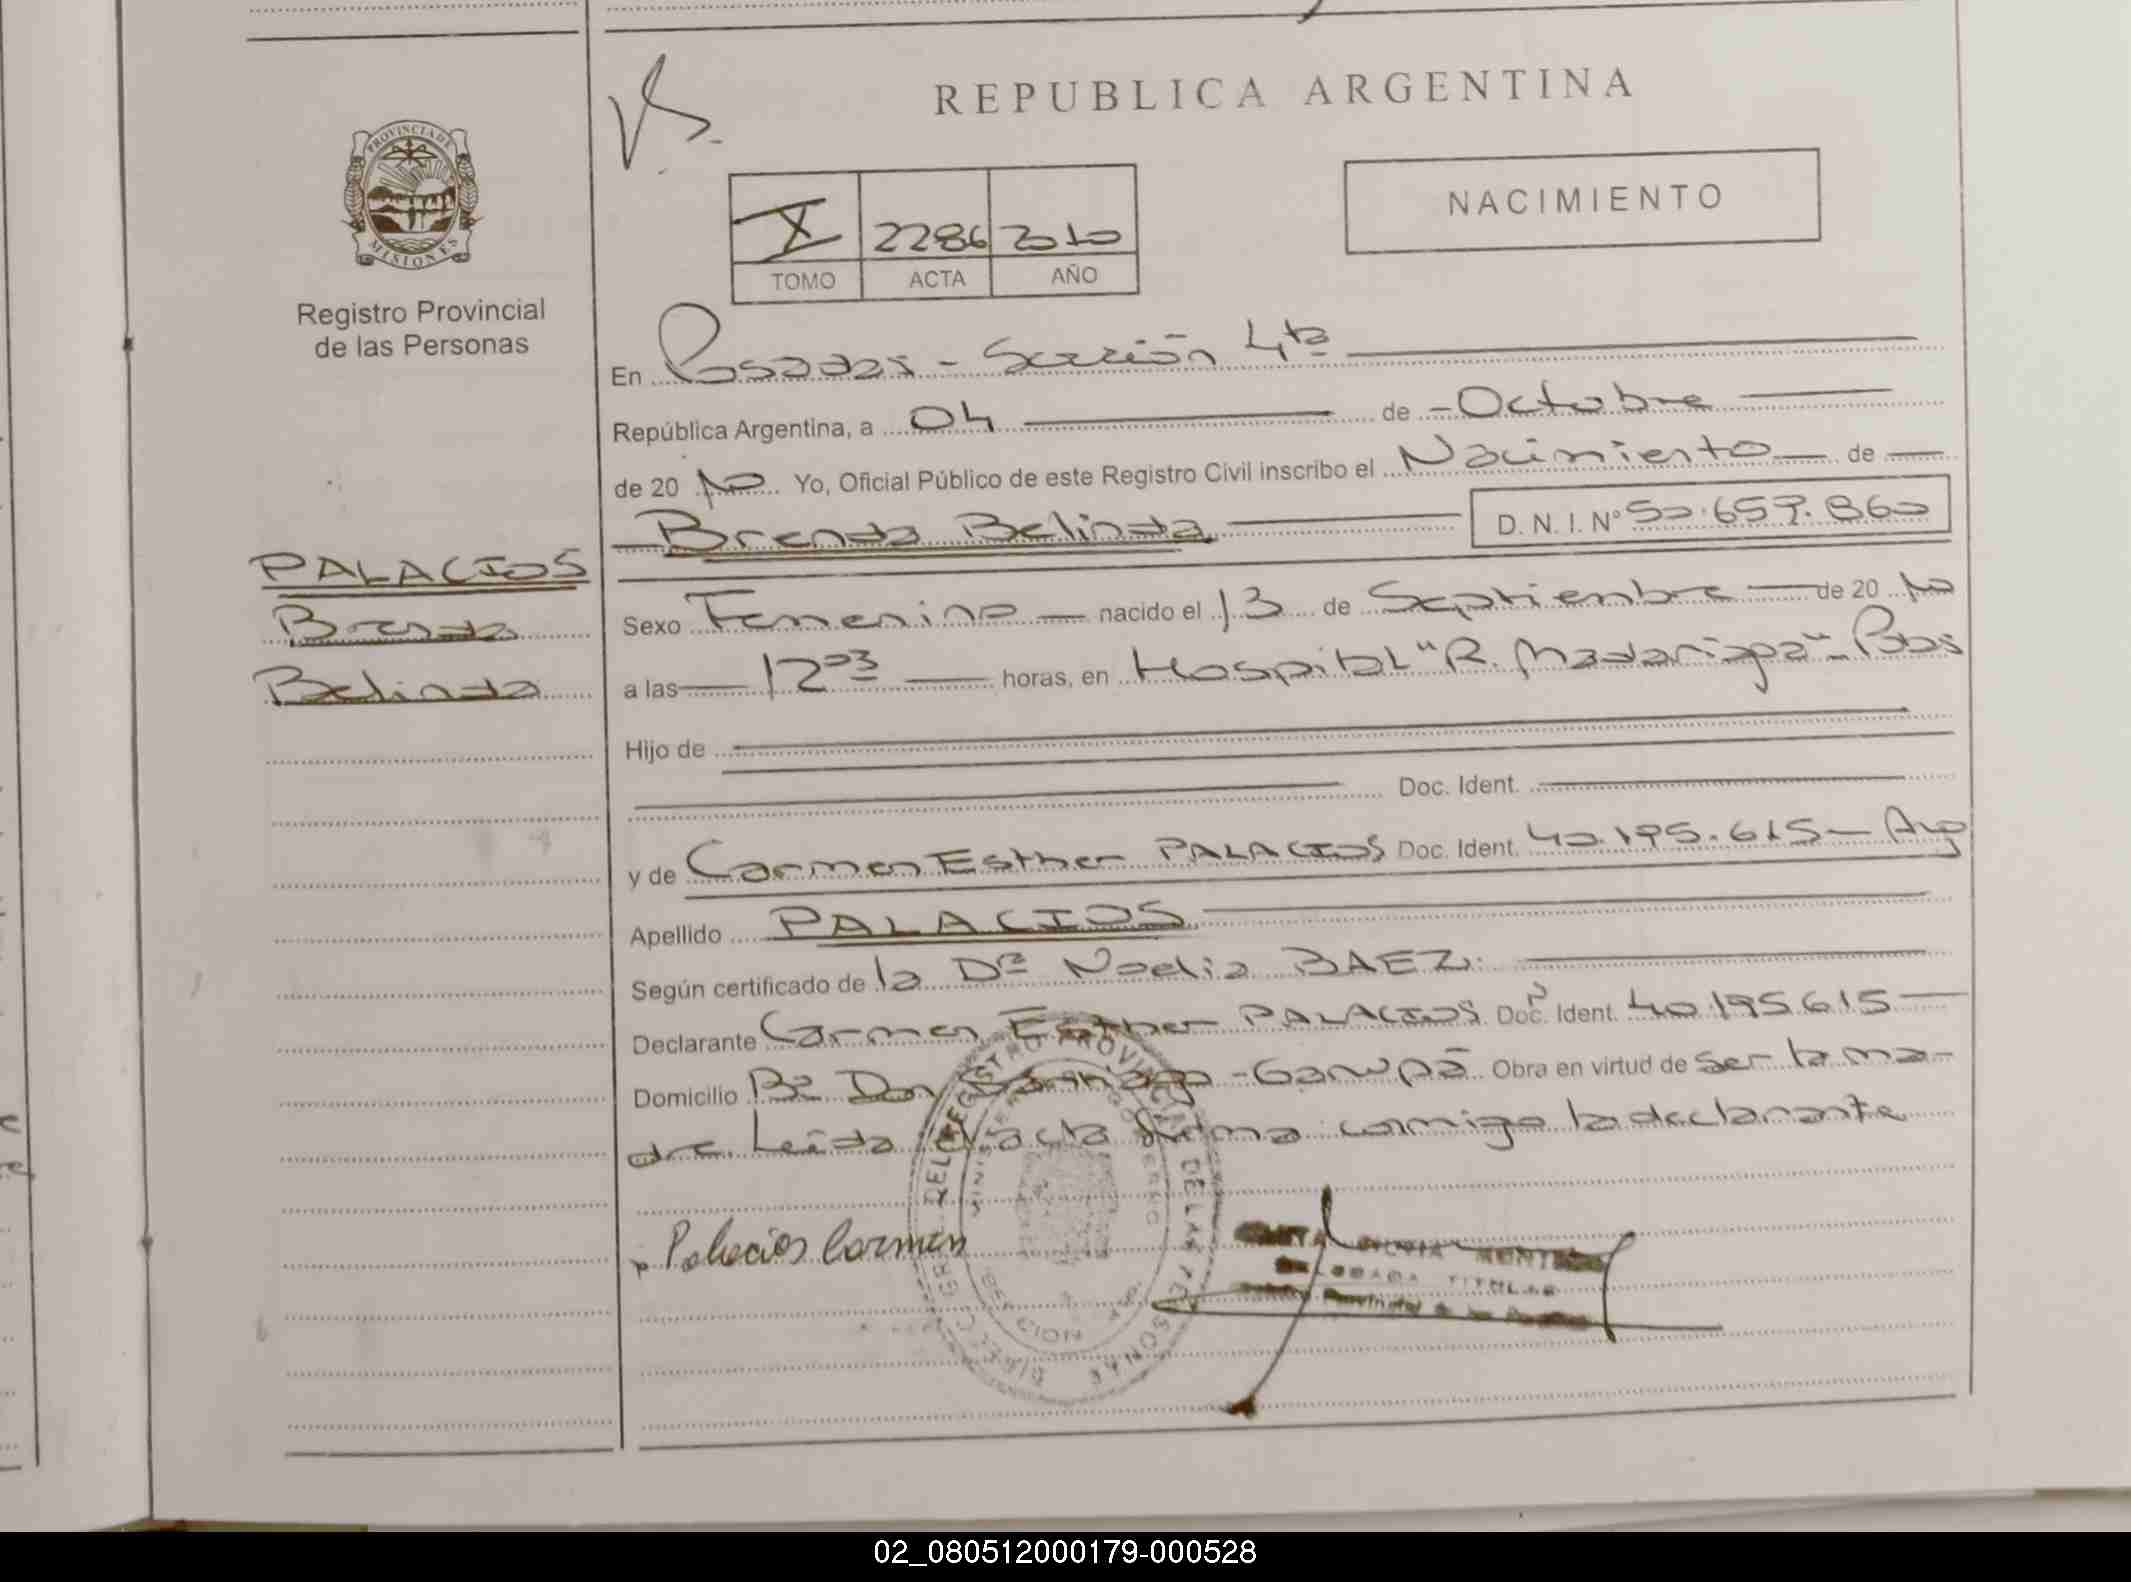 REPUBLICA ARGENTINA
PROVINCIA DE
MISIONES
Registro Provincial
de las Personas
NACIMIENTO
X 2286 2010
TOMO ACTA AÑO
En Posadas - Sección 4ta
República Argentina, a 04 de - Octubre
de 20 10 Yo, Oficial Público de este Registro Civil inscribo el Nacimiento de
Brenda Belinda D. N. I. Nº 50.657.860
PALACIOS
Brenda
Belinda
Sexo Femenino nacido el 13 de Septiembre de 20 10
a las 12 03 horas, en Hospital "R. Madariaga" - Pdas
Hijo de
Doc. Ident.
y de Carmen Esther PALACIOS Doc. Ident. 40.195.615 - Arg
Apellido PALACIOS
Según certificado de la Dra Noelia BAEZ.
Declarante Carmen Esther PALACIOS Doc. Ident. 40.195.615
Domicilio Bº Don Santiago - Garupá Obra en virtud de ser la ma-
dre. Leida el acta firma conmigo la declarante
Palacios Carmen
DELEGADA TITULAR
02_080512000179-000528